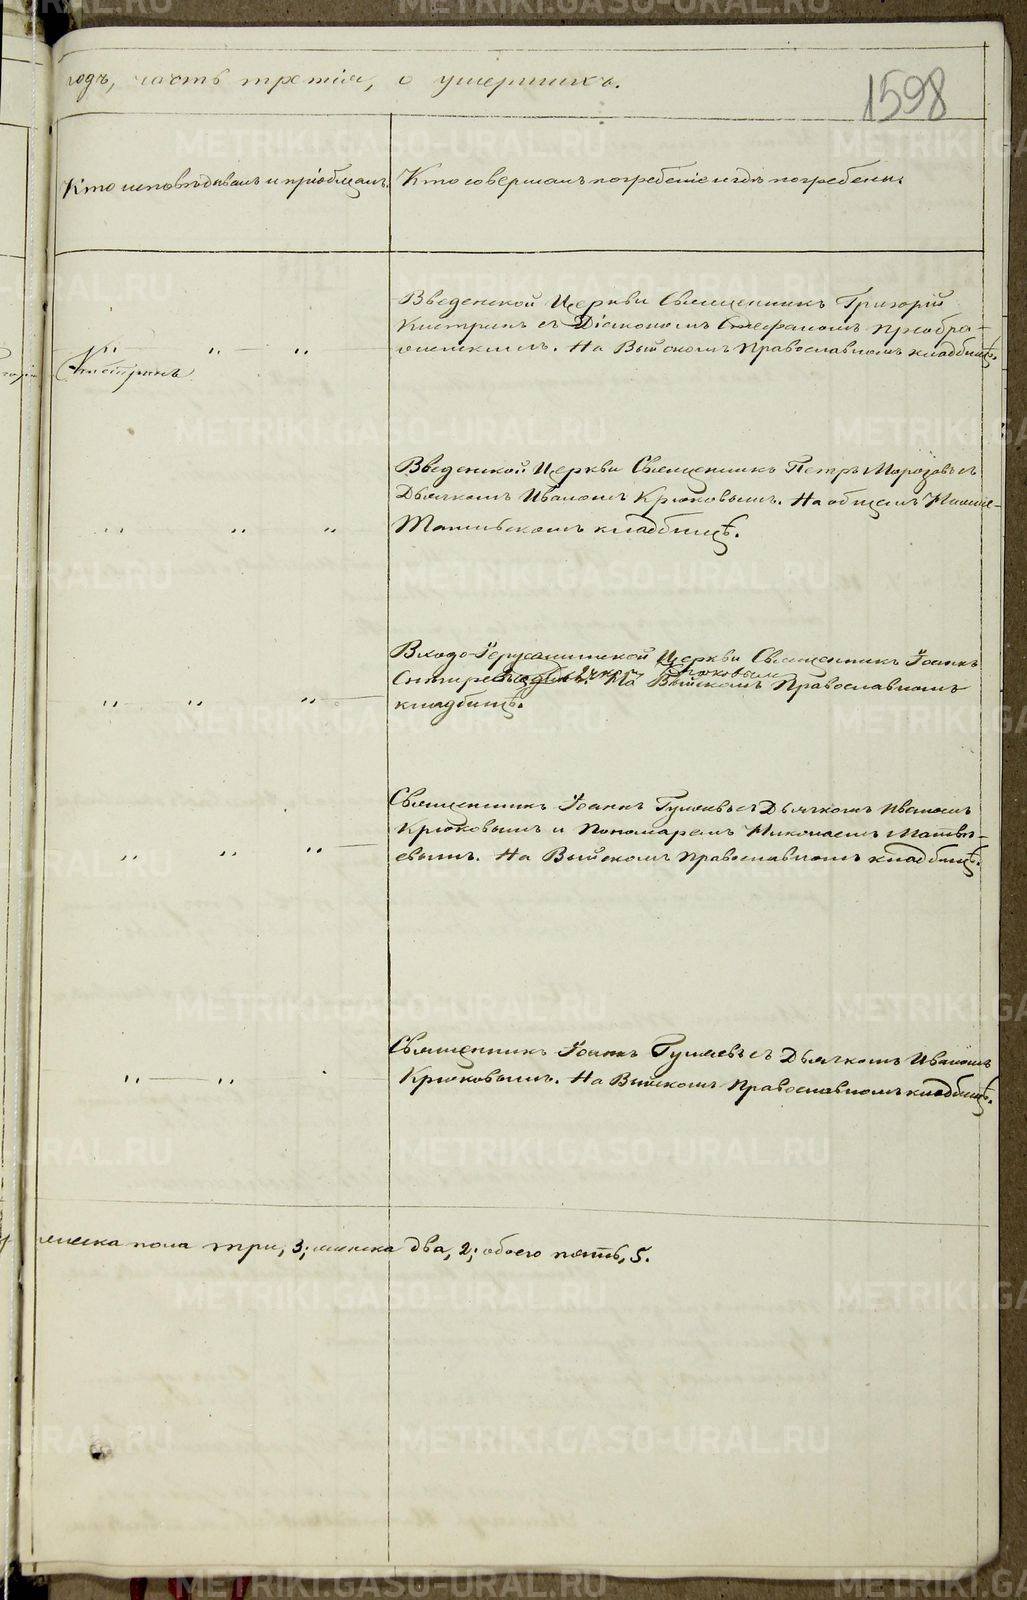 годъ, часть третія, о умершихъ.
1598
Кто исповѣдывалъ и пріобщалъ.
Кто совершалъ погребеніе и гдѣ погребены.
Введенской Церкви Священникъ Григорій
Кистринъ съ Діакономъ Стефаномъ Преобра-
женскимъ. На Выйскомъ Православномъ кладбищѣ.
Кистринъ
Введенской Церкви Священникъ Петръ Морозовъ съ
Дьячкомъ Иваномъ Крюковымъ. На общемъ
кладбищѣ.
Входо-Іерусалимской Церкви Священникъ Іоаннъ
На Выйскомъ Православномъ
кладбищѣ.
Священникъ Іоаннъ Гуляевъ съ Дьячкомъ Иваномъ
Крюковымъ и Пономаремъ Николаемъ Матвѣ-
евымъ. На Выйскомъ Православномъ кладбищѣ.
Священникъ Іоаннъ Гуляевъ съ Дьячкомъ Иваномъ
Крюковымъ. На Выйскомъ Православномъ кладбищѣ.
мужеска пола три, 3; женска два, 2; обоего пять, 5.
METRIKI.GASO-URAL.RU